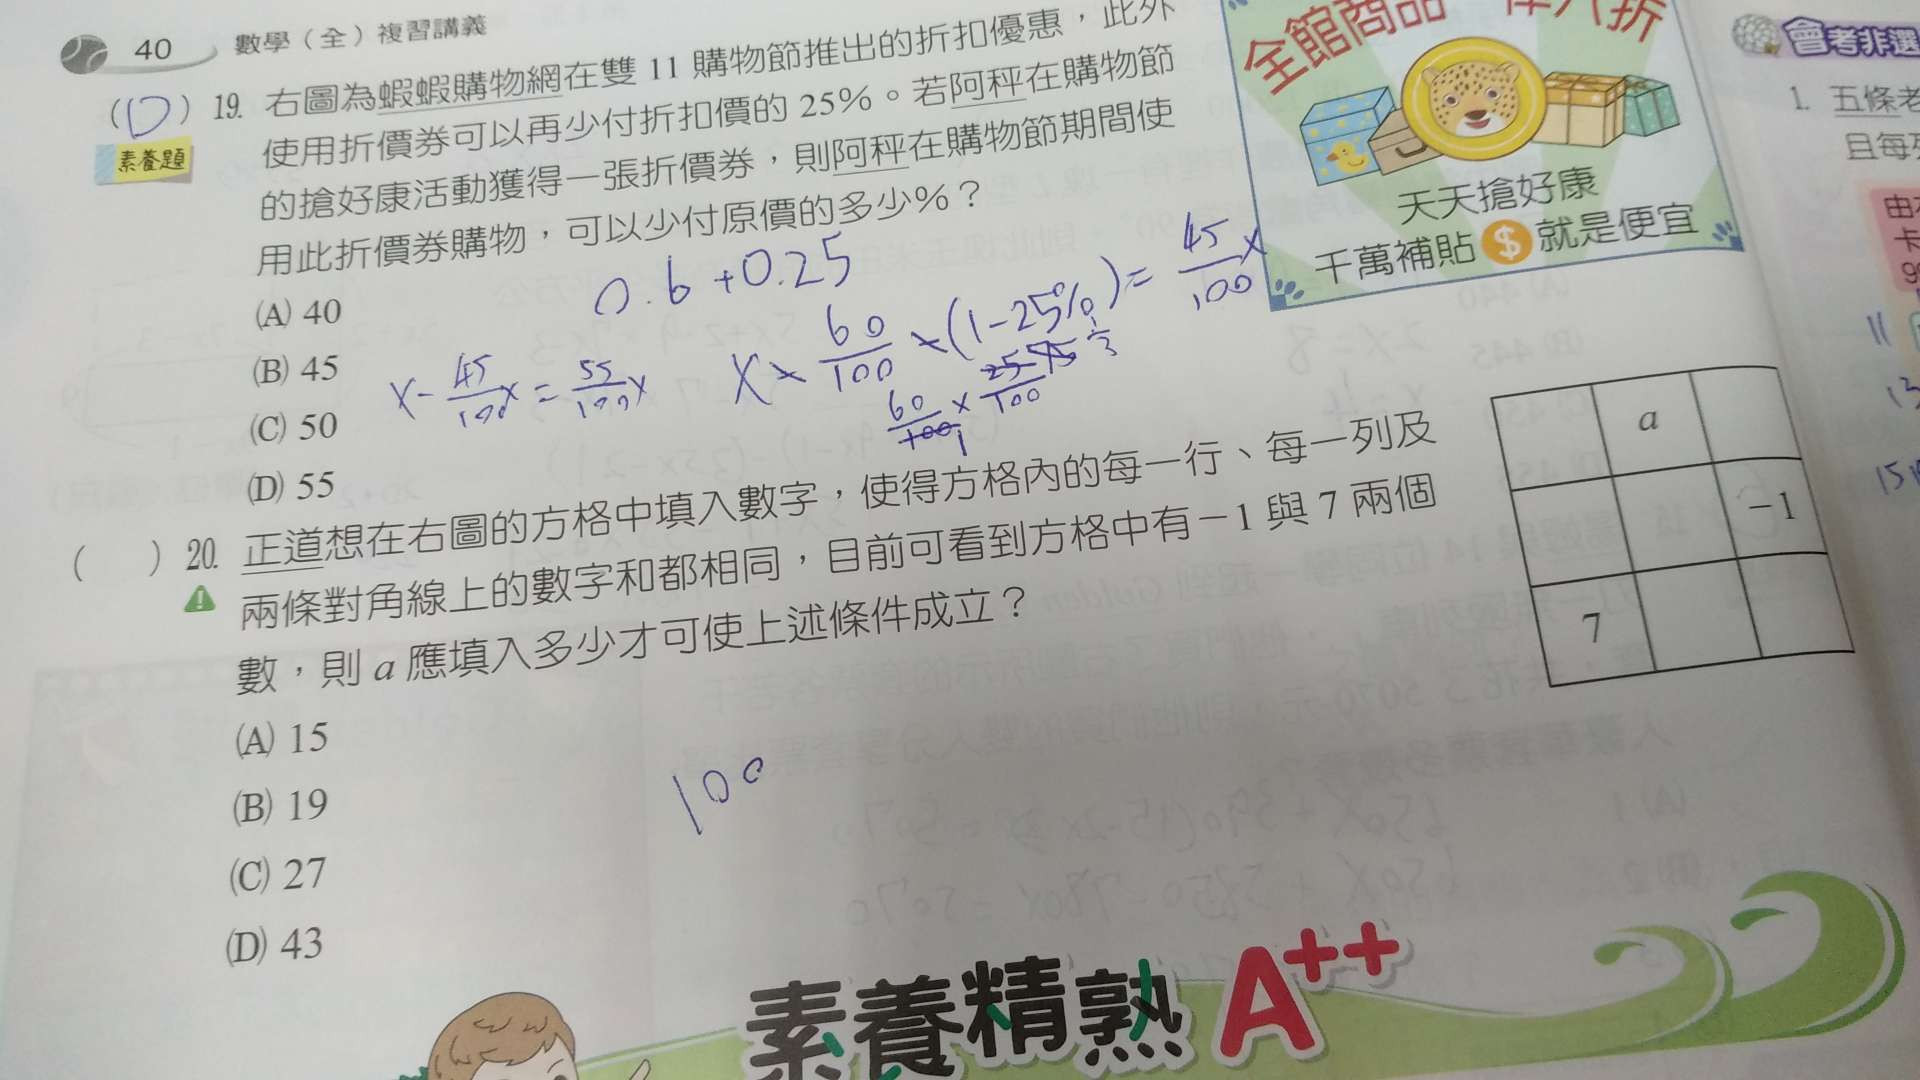 40 數學（全）複習講義
(D) 19. 右圖為蝦蝦購物網在雙 11 購物節推出的折扣優惠，此外
素養題
使用折價券可以再少付折扣價的 25%。若阿秤在購物節
的搶好康活動獲得一張折價券，則阿秤在購物節期間使
用此折價券購物，可以少付原價的多少%？
(A) 40
(B) 45
(C) 50
(D) 55
0.6+0.25
x × 60/100 × (1-25%) = 45/100 x
x - 45/100 x = 55/100 x
60/100 × 75/100
全館商品一律六折
天天搶好康
千萬補貼 $ 就是便宜
( ) 20. 正道想在右圖的方格中填入數字，使得方格內的每一行、每一列及
兩條對角線上的數字和都相同，目前可看到方格中有－1 與 7 兩個
數，則 a 應填入多少才可使上述條件成立？
(A) 15
(B) 19
(C) 27
(D) 43
100
a
－1
7
素養精熟 A++
會考非選
1. 五條老
且每列